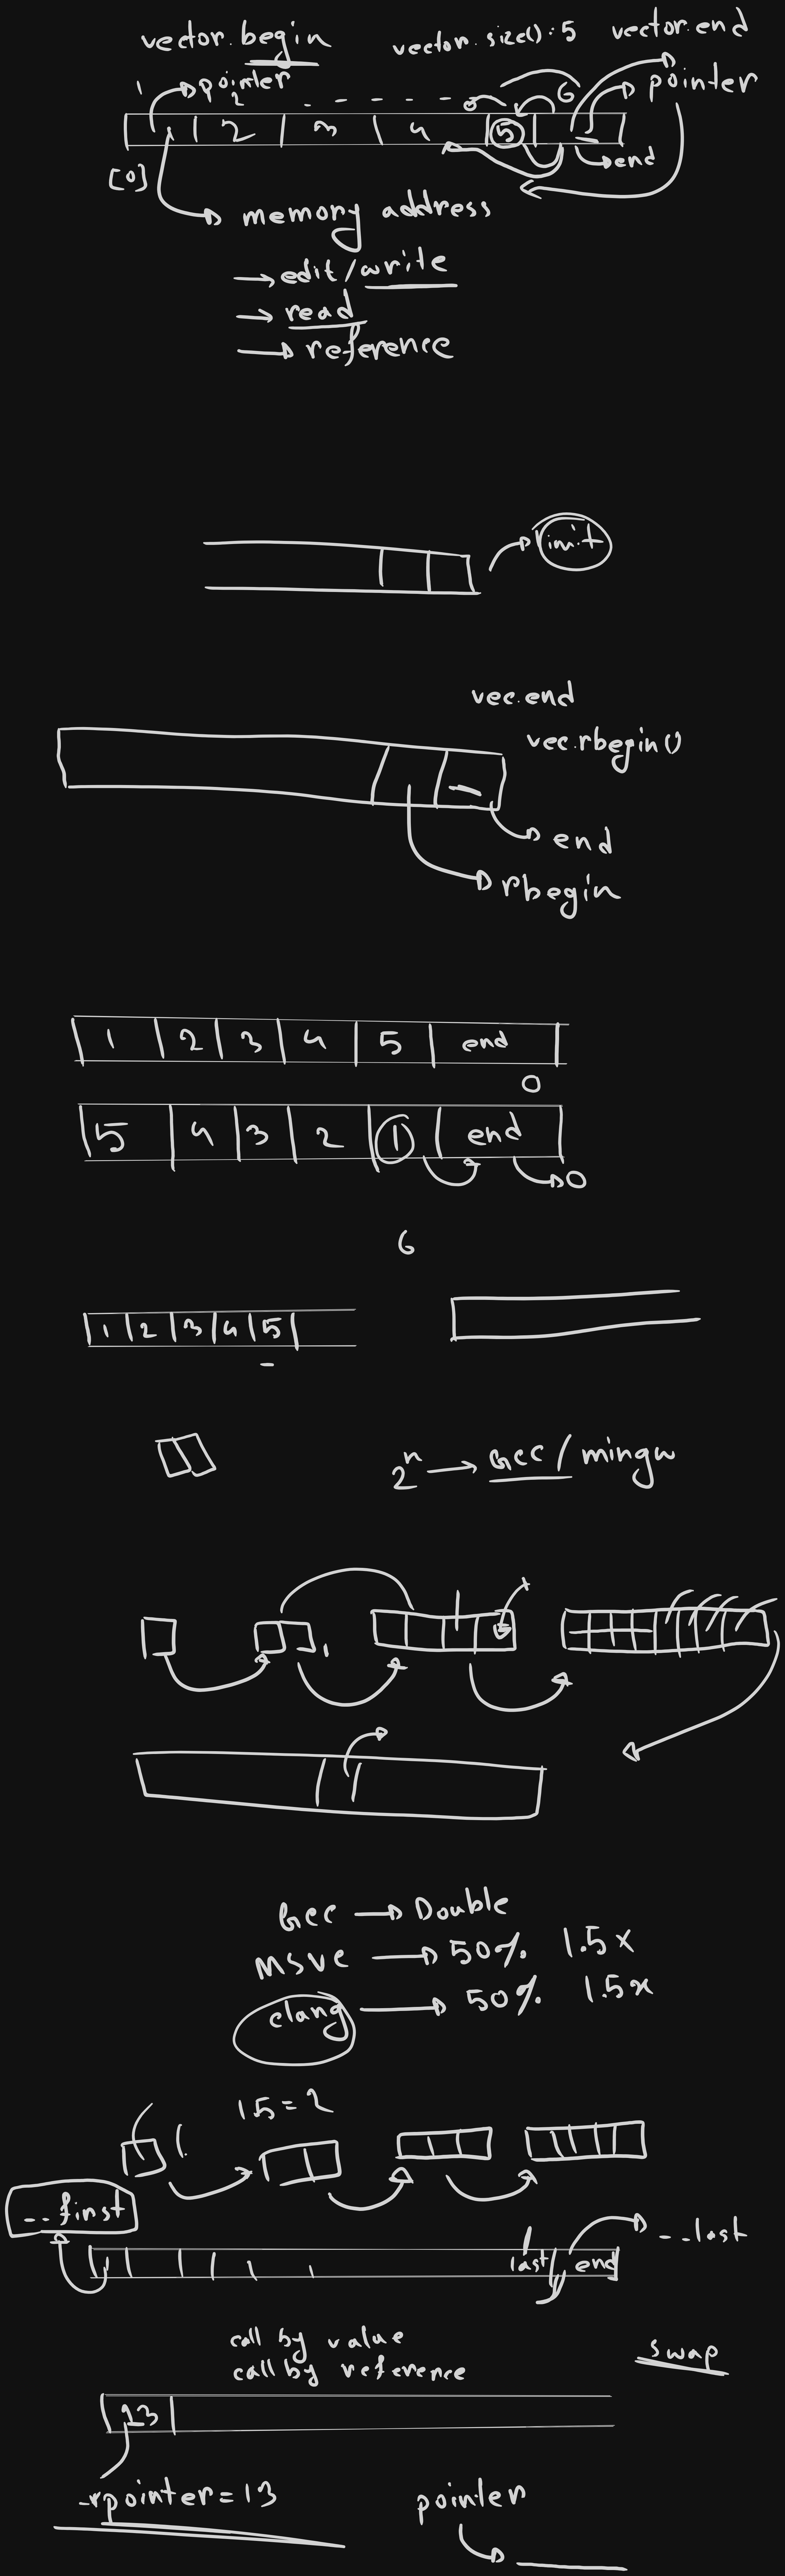 vector.begin vector.size() : 5 vector.end
1 pointer
2 - - - - - 6 pointer
1 2 3 4 5 _
[0] end
memory address
→ edit/write
→ read
→ reference
limit
vec.end
vec.rbegin()
end
rbegin
1 2 3 4 5 end
0
5 4 3 2 1 end
0
6
1 2 3 4 5
2^n → Gcc / mingw
Gcc → Double
MSVC → 50% 1.5x
clang → 50% 1.5x
1.5 = 2
1.
--first
--last
last end
call by value
call by reference
swap
13
*pointer = 13
pointer